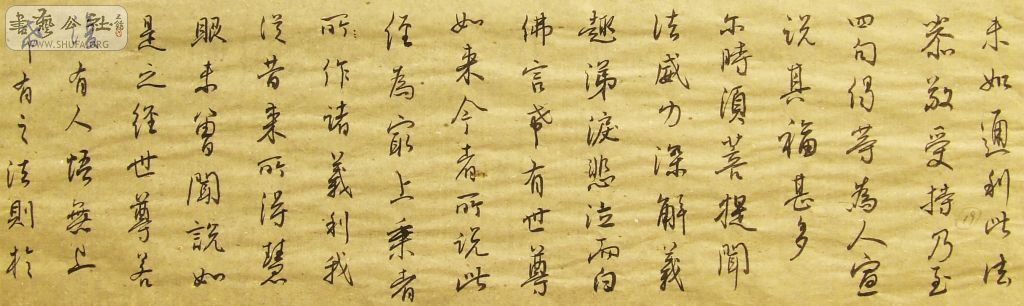 未如通利此法
恭敬受持乃至
四句偈等為人宣
说其福甚多
尔時須菩提聞
法威力深解義
趣涕淚悲泣而白
佛言希有世尊
如来今者所说此
经為最上乘者
所作诸義利我
從昔来所得慧
眼未曾聞說如
是之経世尊若
有人悟無上
有之法則於
191
書藝公社
WWW.SHUFA.ORG